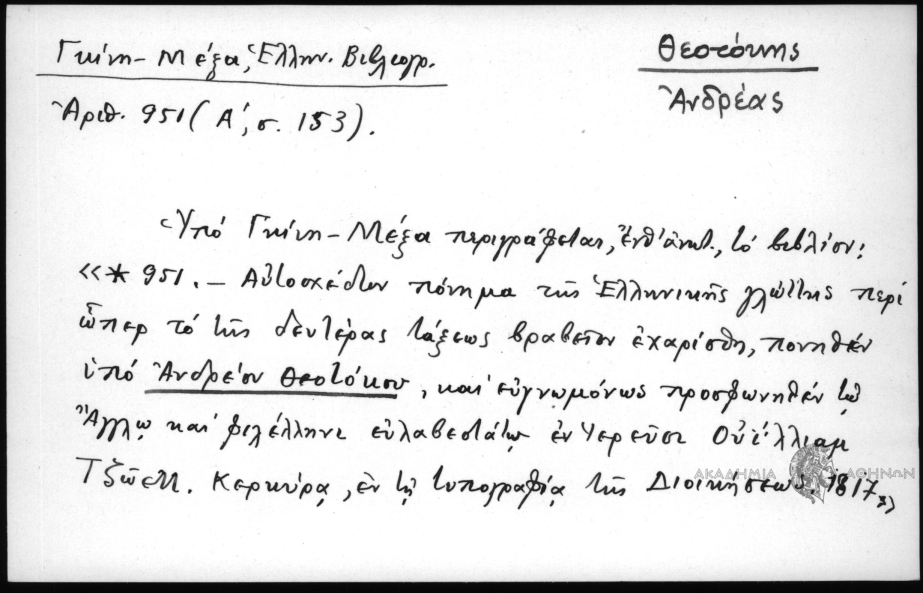 Γκίνη - Μέξα, Ἑλλην. Βιβλιογρ.
Θεοτόκης
Ἀνδρέας
Ἀριθ. 951 (Α΄, σ. 153).
Ὑπό Γκίνη - Μέξα περιγράφεται, ἐνθ' ἀνωτ., τό βιβλίον:
«* 951. - Αὐτοσχέδιον πόνημα τῆς Ἑλληνικῆς γλώττης περί
ὧπερ τό τῆς δευτέρας τάξεως βραβεῖον ἐχαρίσθη, πονηθέν
ὑπό Ἀνδρέου Θεοτόκου, καί εὐγνωμόνως προσφωνηθέν τῷ
Ἄγγλῳ καί φιλέλληνι εὐλαβεστάτῳ ἐν Ἱερεῦσι Οὐΐλλιαμ
Τζῶεττ. Κερκύρᾳ, ἐν τῇ τυπογραφίᾳ τῆς Διοικήσεως. 1817»
ΑΚΑΔΗΜΙΑ ΑΘΗΝΩΝ